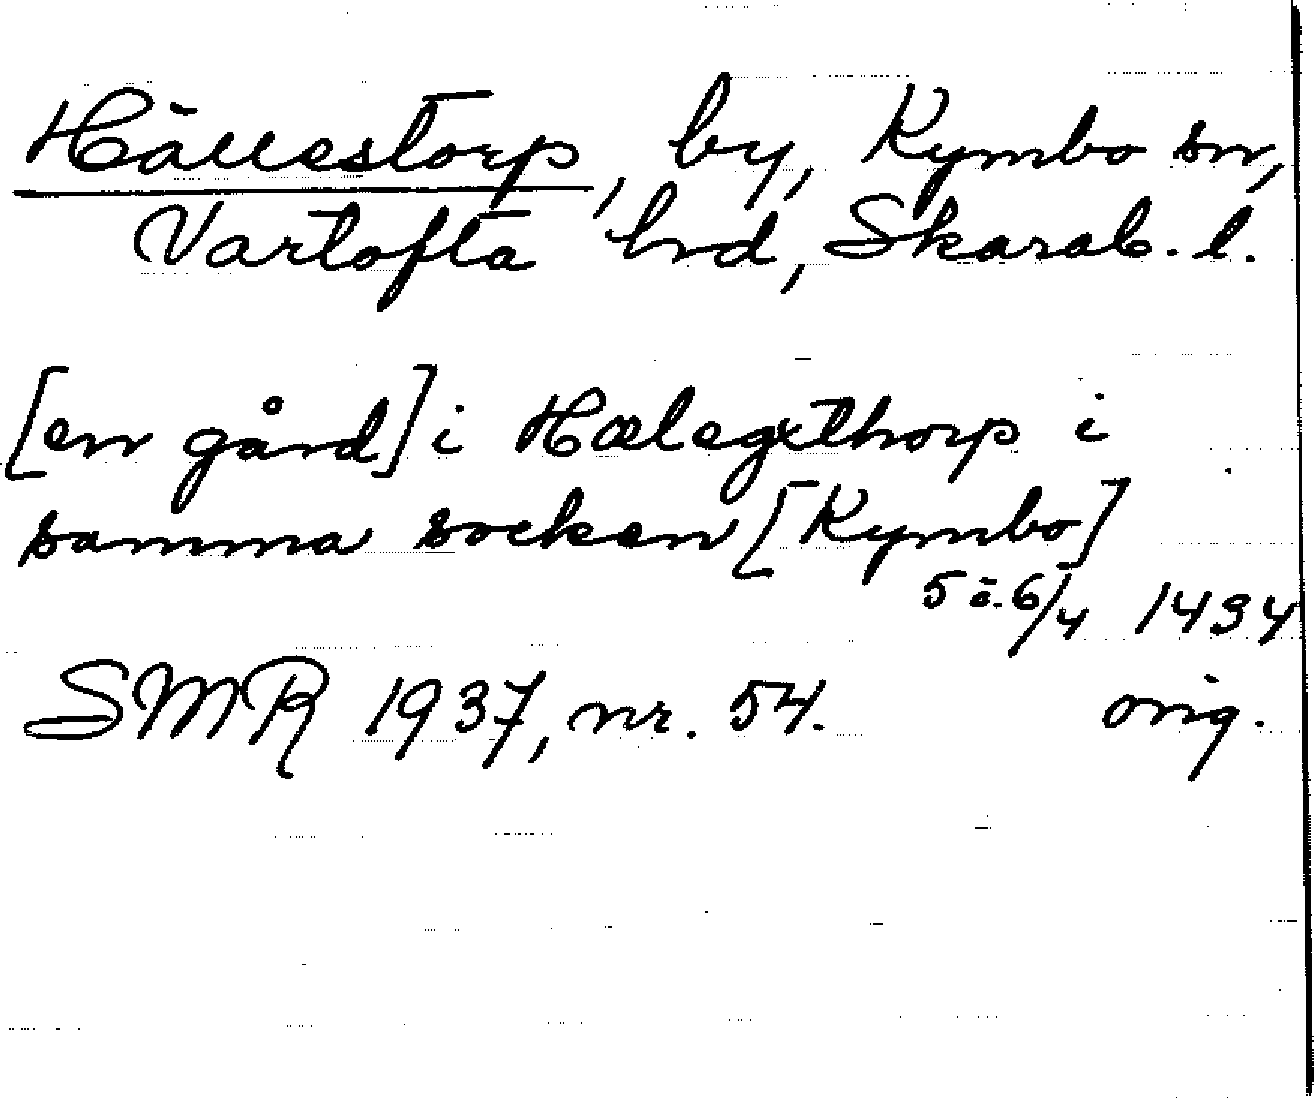 Hällestorp, by, Kymbo sn,
Vartofta hd, Skarab. l.
[en gård] i Hælegxthorp i
samma socken [Kymbo]
5 ö. 6/4 1494
SMR 1937, nr. 54. orig.